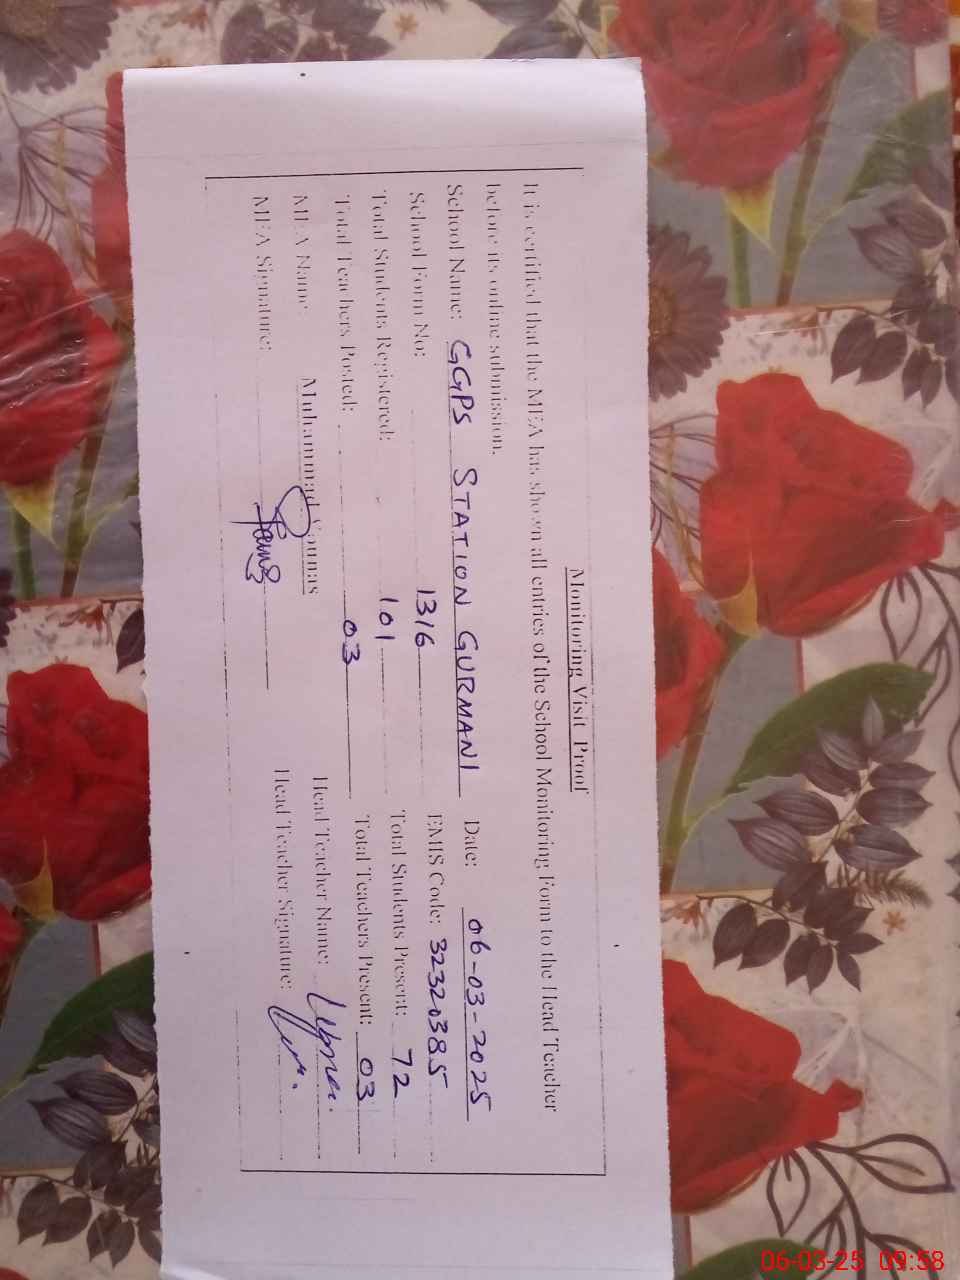 Monitoring Visit Proof
It is certified that the MEA has shown all entries of the School Monitoring Form to the Head Teacher
before its online submission.
School Name: GGPS STATION GURMANI Date: 06-03-2025
School Form No: 1316 EMIS Code: 32320385
Total Students Registered: 101 Total Students Present: 72
Total Teachers Posted: 03 Total Teachers Present: 03
MEA Name: Muhammad Younas Head Teacher Name:
MEA Signature: Head Teacher Signature:
06-03-25 09:58